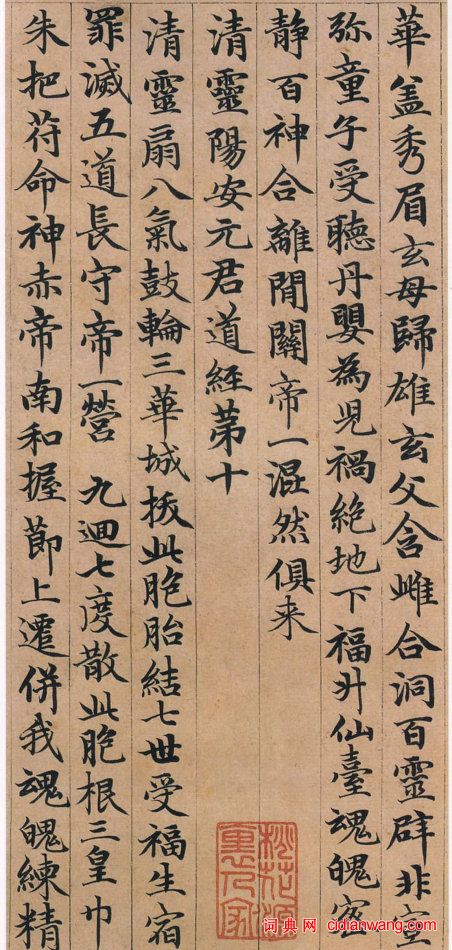 華盖秀眉玄母歸雄玄父含雌合洞百靈辟非
弥童子受聴丹嬰為児禍絶地下福升仙臺魂魄
静百神合離閒關帝一混然俱来
清靈陽安元君道經第十
清靈扇八氣鼓輪三華城拔此胞胎結七世受福生宿
罪滅五道長守帝一營 九迴七度散此胞根三皇巾
朱把苻命神赤帝南和握節上遷併我魂魄練精
桃花源裏人家
詞典网 cidianwang.com